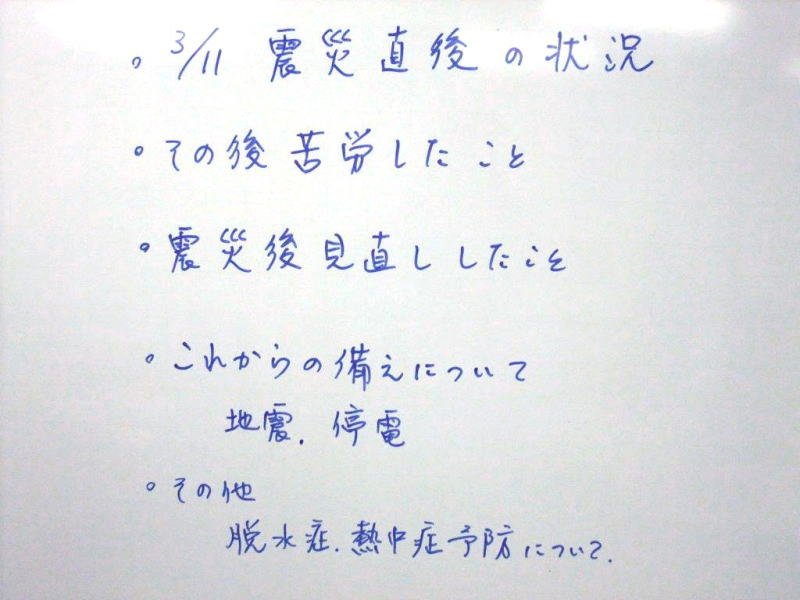 。3/11 震災直後の状況
。その後 苦労したこと
。震災後見直ししたこと
。これからの備えについて
地震. 停電
。その他
脱水症. 熱中症予防について.